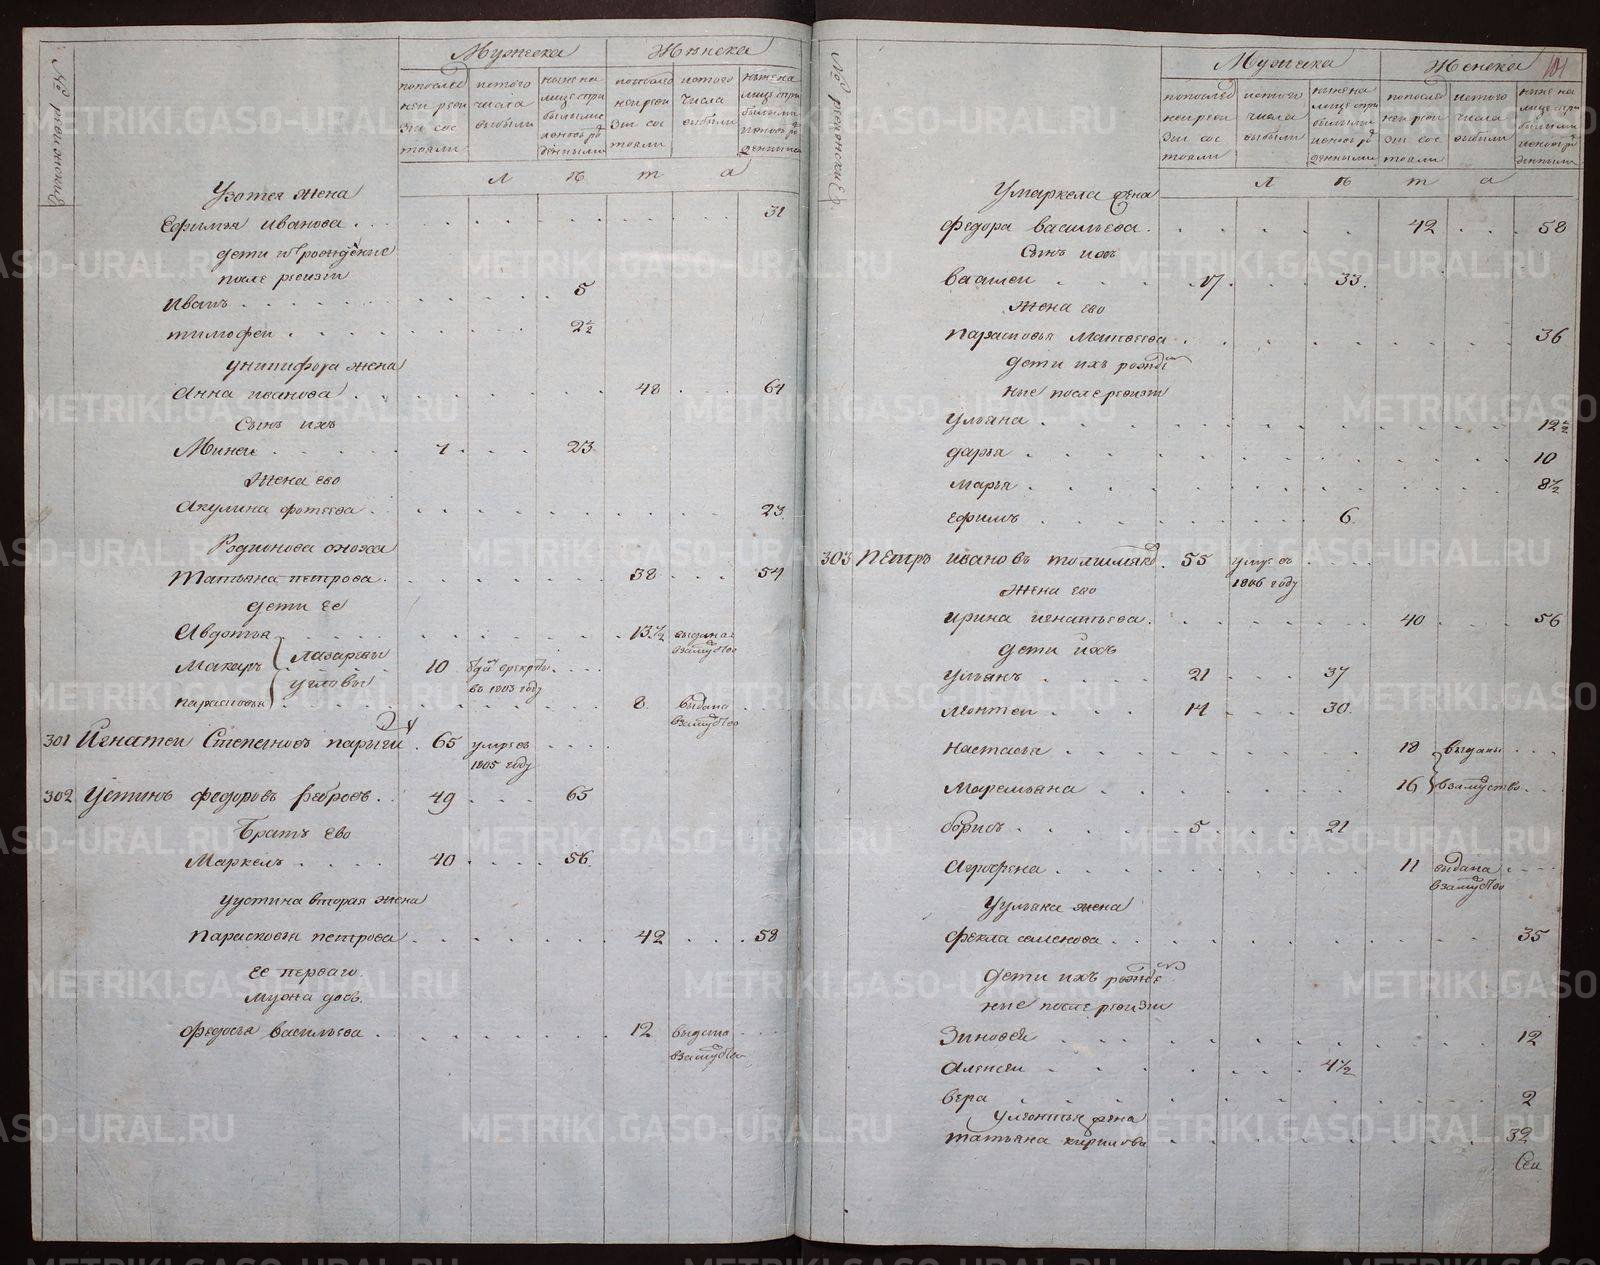 № ревижской
Мужеска
Женска
попослед
ней реви
зии сос
тояли
истого
числа
выбыли
ныне на
лице спри
былыми
ивновь ро
жденными
попослед
ней реви
зии сос
тояли
истого
числа
выбыли
ныне на
лице спри
былыми
ивновь ро
жденными
л е т а
У зотея жена
Ефимья иванова . . . 31
дети их рожденные
после ревизии
Иванъ . . . 5
тимофеи . . . 2½
унипифора жена
Анна иванова . . . 48 . . . 64
Сынъ ихъ
Минеи . . . 7 . . . 23
жена ево
Акулина фотеева . . . 23
Родионова сноха
Татьяна петрова . . . 38 . . . 54
дети ее
Авдотья . . . 13½ выдана
взамужство
Макаръ . . . 10
лазаревы
угловы
во 1803 году
парасковья . . . 8 выдана
взамужство
301 Игнатеи Степановъ . 65 умре въ
1805 году
302 Устинъ федоровъ бобровъ . . 49 . . . 65
братъ ево
Маркелъ . . . 40 . . . 56
У устина вторая жена
парасковья петрова . . . 42 . . . 58
ее перваго
мужа дочь
федосья васильева . . . 12 выдана
взамужство
№ ревижской
Мужеска
Женска
101
попослед
ней реви
зии сос
тояли
истого
числа
выбыли
ныне на
лице спри
былыми
ивновь ро
жденными
попослед
ней реви
зии сос
тояли
истого
числа
выбыли
ныне на
лице спри
былыми
ивновь ро
жденными
л е т а
У маркела жена
федора васильева . . . 42 . . . 58
Сынъ ихъ
василеи . . . 17 . . . 33
жена ево
парасковья матвеева . . . 36
дети ихъ рожде
ные после ревизии
Ульяна . . . 12½
дарья . . . 10
марья . . . 8½
ефимъ . . . 6
303 петръ ивановъ . 55 умре въ
1806 году
жена ево
ирина игнатьева . . . 40 . . . 56
дети ихъ
Ульянъ . . . 21 . . . 37
леонтеи . . . 14 . . . 30
настасья . . . 18 выданы
маремьяна . . . 16 взамужство
борисъ . . . 5 . . . 21
Агрофена . . . 11 выдана
взамужство
У ульяна жена
фекла семенова . . . 35
дети ихъ рожде
ные после ревизии
Зиновея . . . 12
Алексеи . . . 4½
вера . . . 2
У леонтья жена
татьяна кирилова . . . 32
METRIKI.GASO-URAL.RU